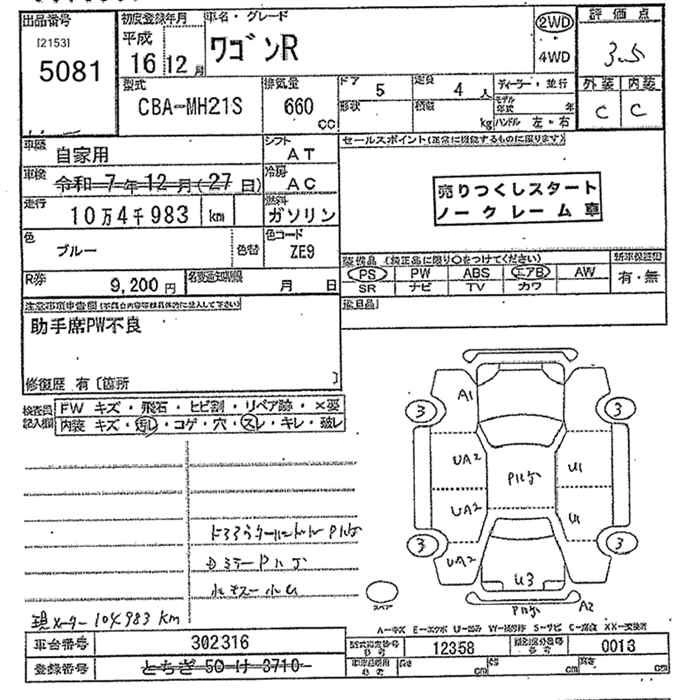 出品番号
[2153]
5081
初度登録年月
平成
16 12月
車名・グレード
ワゴンR
2WD
4WD
評価点
3.5
外装 内装
C C
型式
CBA-MH21S
排気量
660
cc
ドア 5
形状
定員 4 人
積載
kg
ディーラー・並行
モデル年式 年
ハンドル 左・右
車歴
自家用
シフト
AT
車検
令和 7年12月(27日)
冷房
AC
走行
10万4千983 km
燃料
ガソリン
色
ブルー
色替
色コード
ZE9
R券
9,200円
名変通知期限
月 日
セールスポイント(正常に機能するものに限ります)
売りつくしスタート
ノークレーム車
装備品(純正品に限り○をつけてください)
新車保証書
PS PW ABS エアB AW
SR ナビ TV カワ
有・無
注意事項申告欄
助手席PW不良
修復歴 有〔箇所 〕
検査員記入欄
FW キズ・飛石・ヒビ割・リペア跡・×要
内装 キズ・汚レ・コゲ・穴・スレ・キレ・破レ
A1
3
3
UA2
Pハゲ
U1
UA2
U
3
3
UA2
U3
Pハゲ
A2
スペア
DミラーPハゲ
現メーター 104983 km
A-キズ E-エクボ U-凹み W-補修跡 S-サビ C-腐食 XX-交換済
車台番号
302316
型式指定番号
参考
12358
類別区分番号
参考
0013
登録番号
とちぎ 50 け 3710
長さ cm
幅 cm
高さ cm